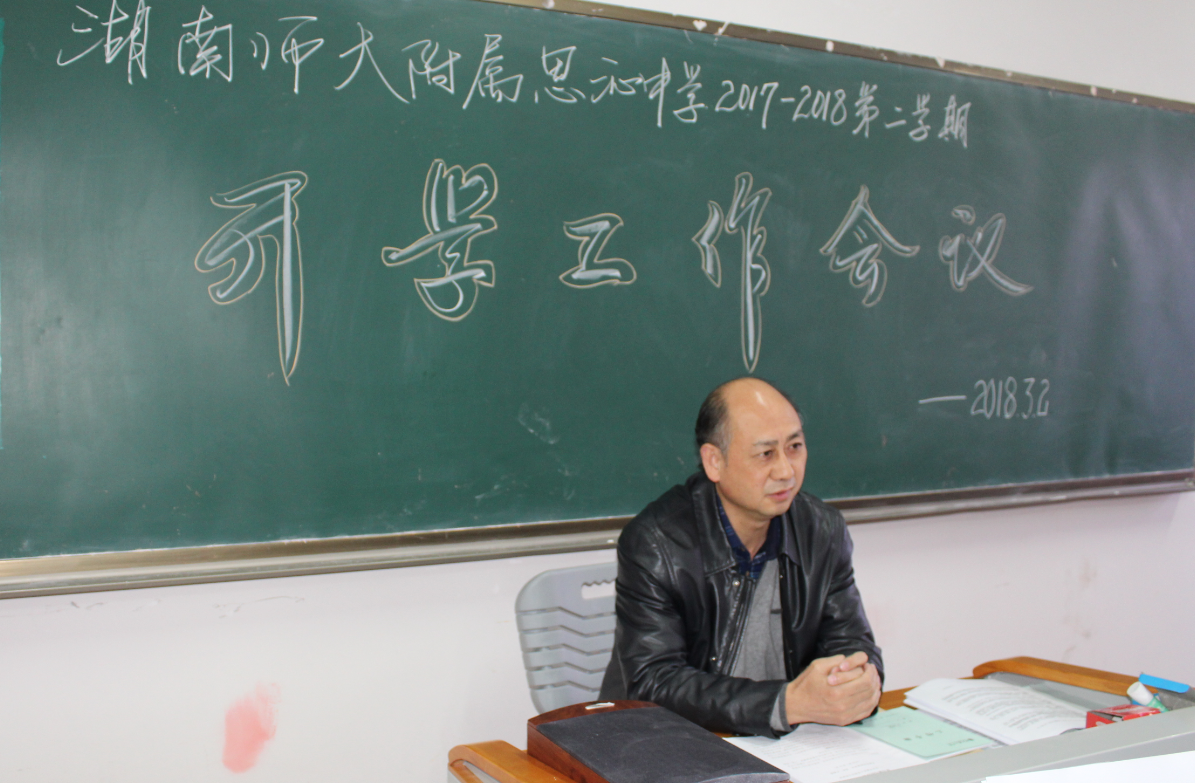 湖南师大附属思沁中学2017-2018第二学期
开学工作会议
—2018.3.2